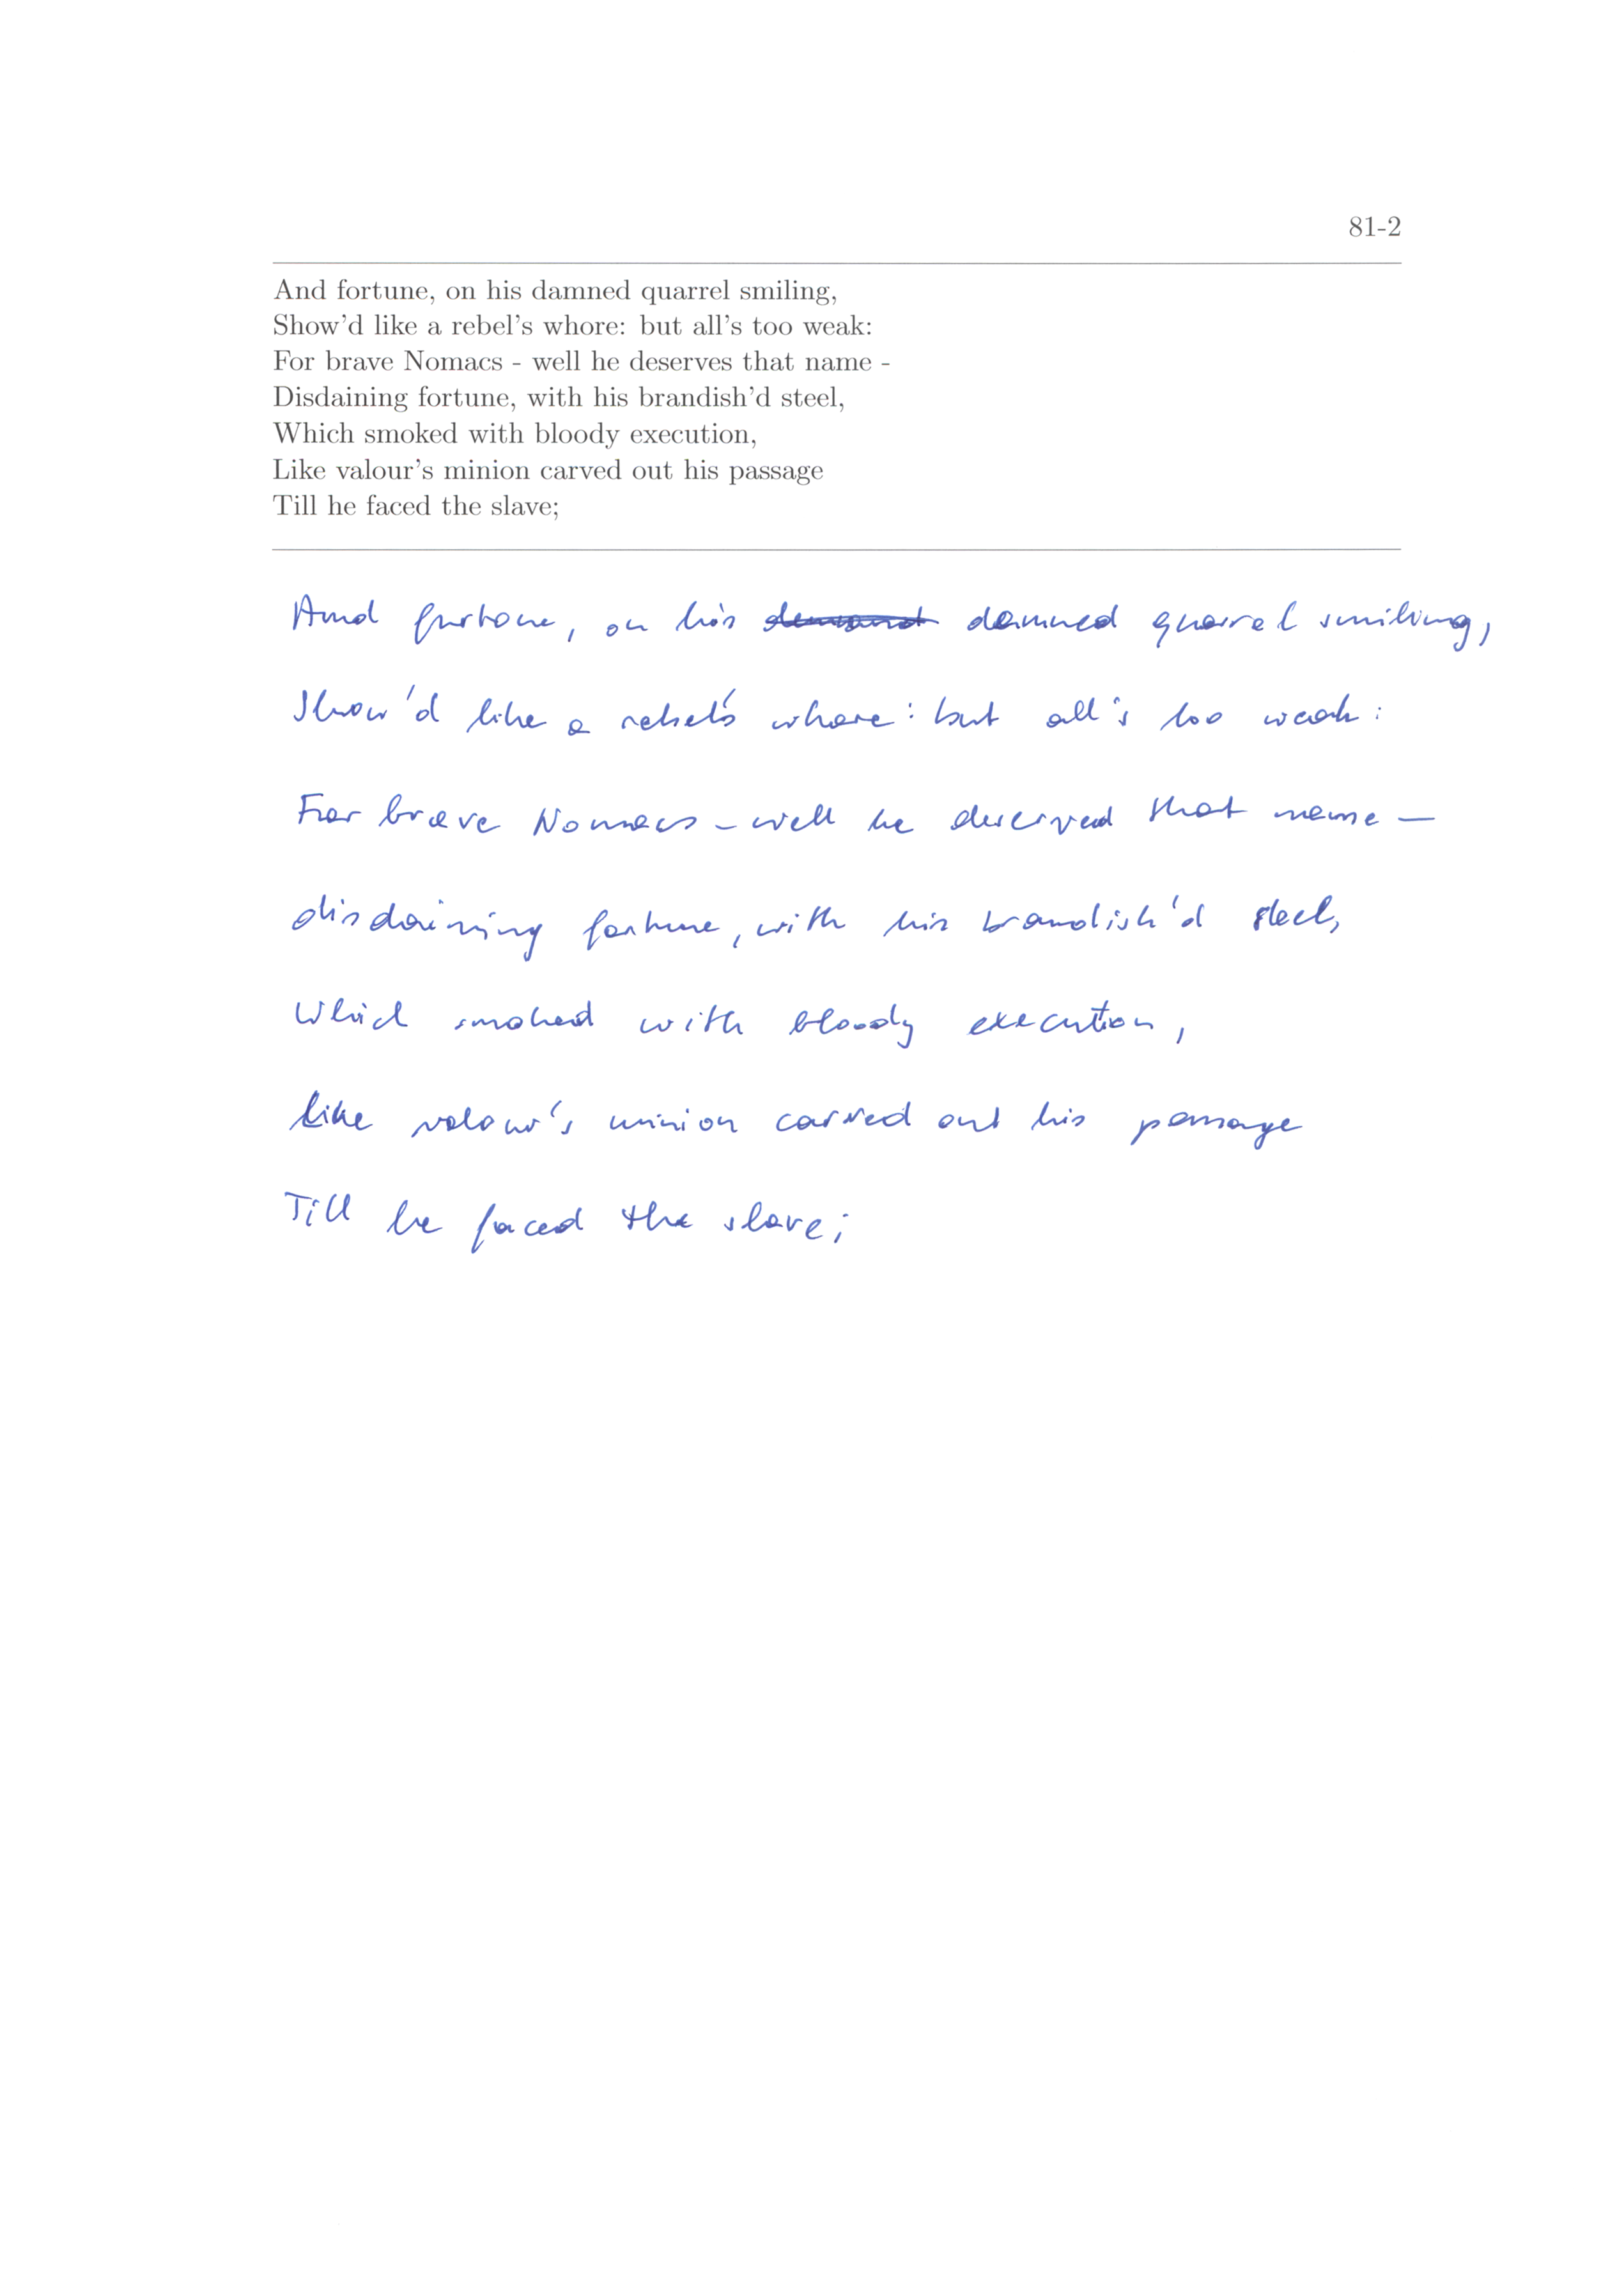 81-2
And fortune, on his damned quarrel smiling,
Show'd like a rebel's whore: but all's too weak:
For brave Nomacs - well he deserves that name -
Disdaining fortune, with his brandish'd steel,
Which smoked with bloody execution,
Like valour's minion carved out his passage
Till he faced the slave;
And furtone, on his damned quarrel smiling,
Show'd like a rebel's whore: but all's too weak:
For brave Nomacs - well he deserved that name -
disdaining fortune, with his brandish'd steel,
Which smoked with bloody execution,
Like valour's minion carved out his passage
Till he faced the slave;